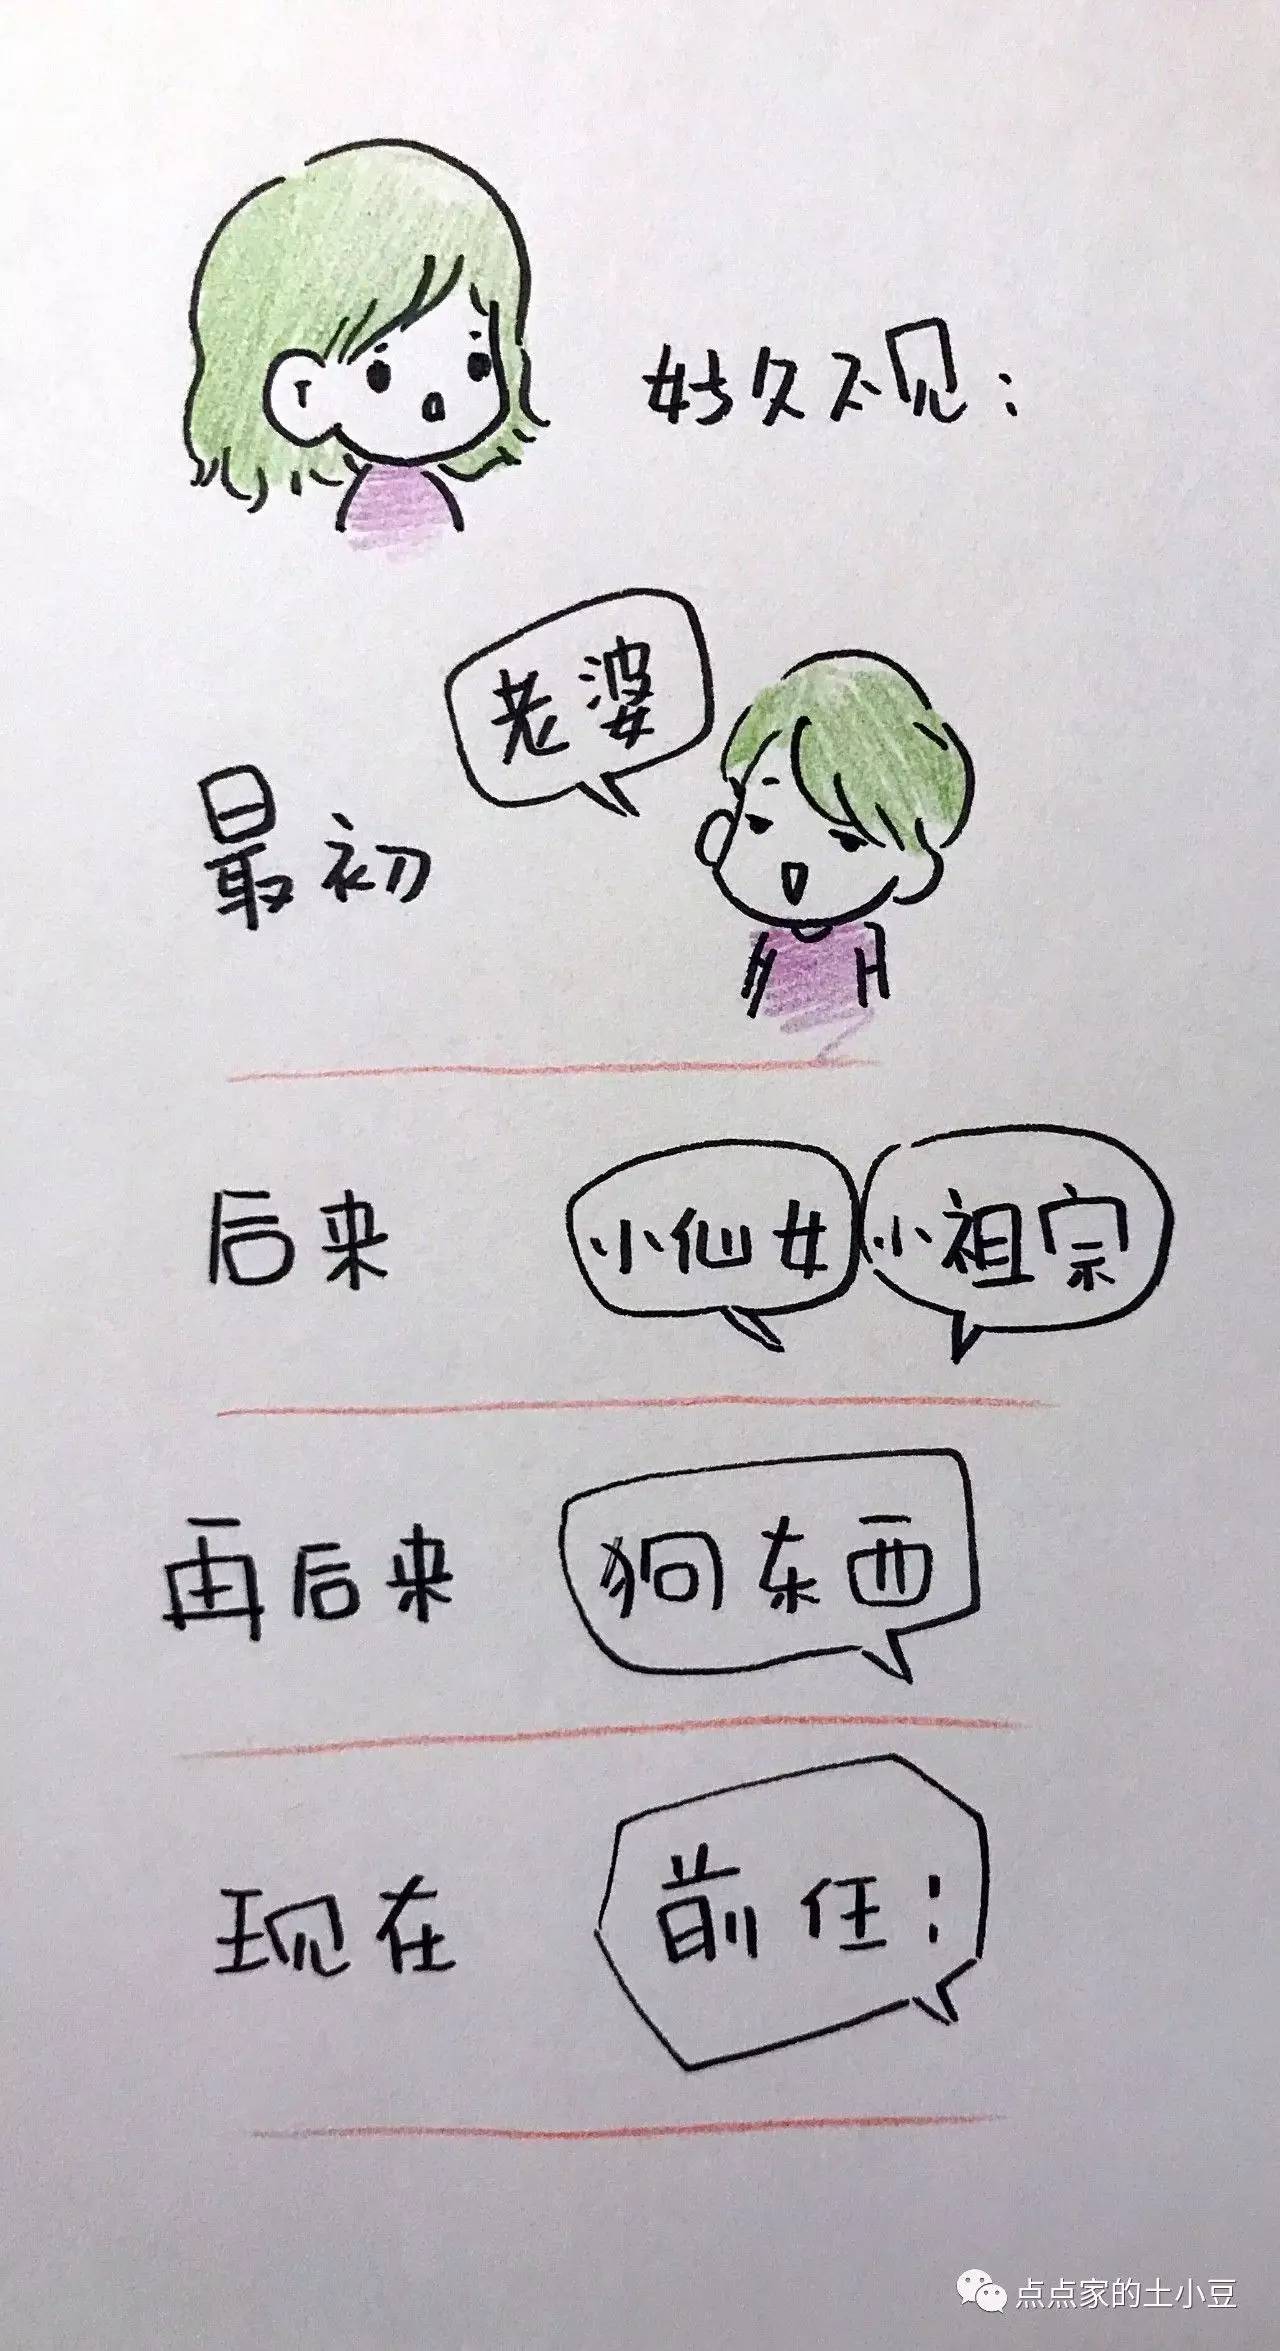 好久不见:
老婆
最初
后来 小仙女 小祖宗
再后来 狗东西
现在 前任:
点点家的土小豆